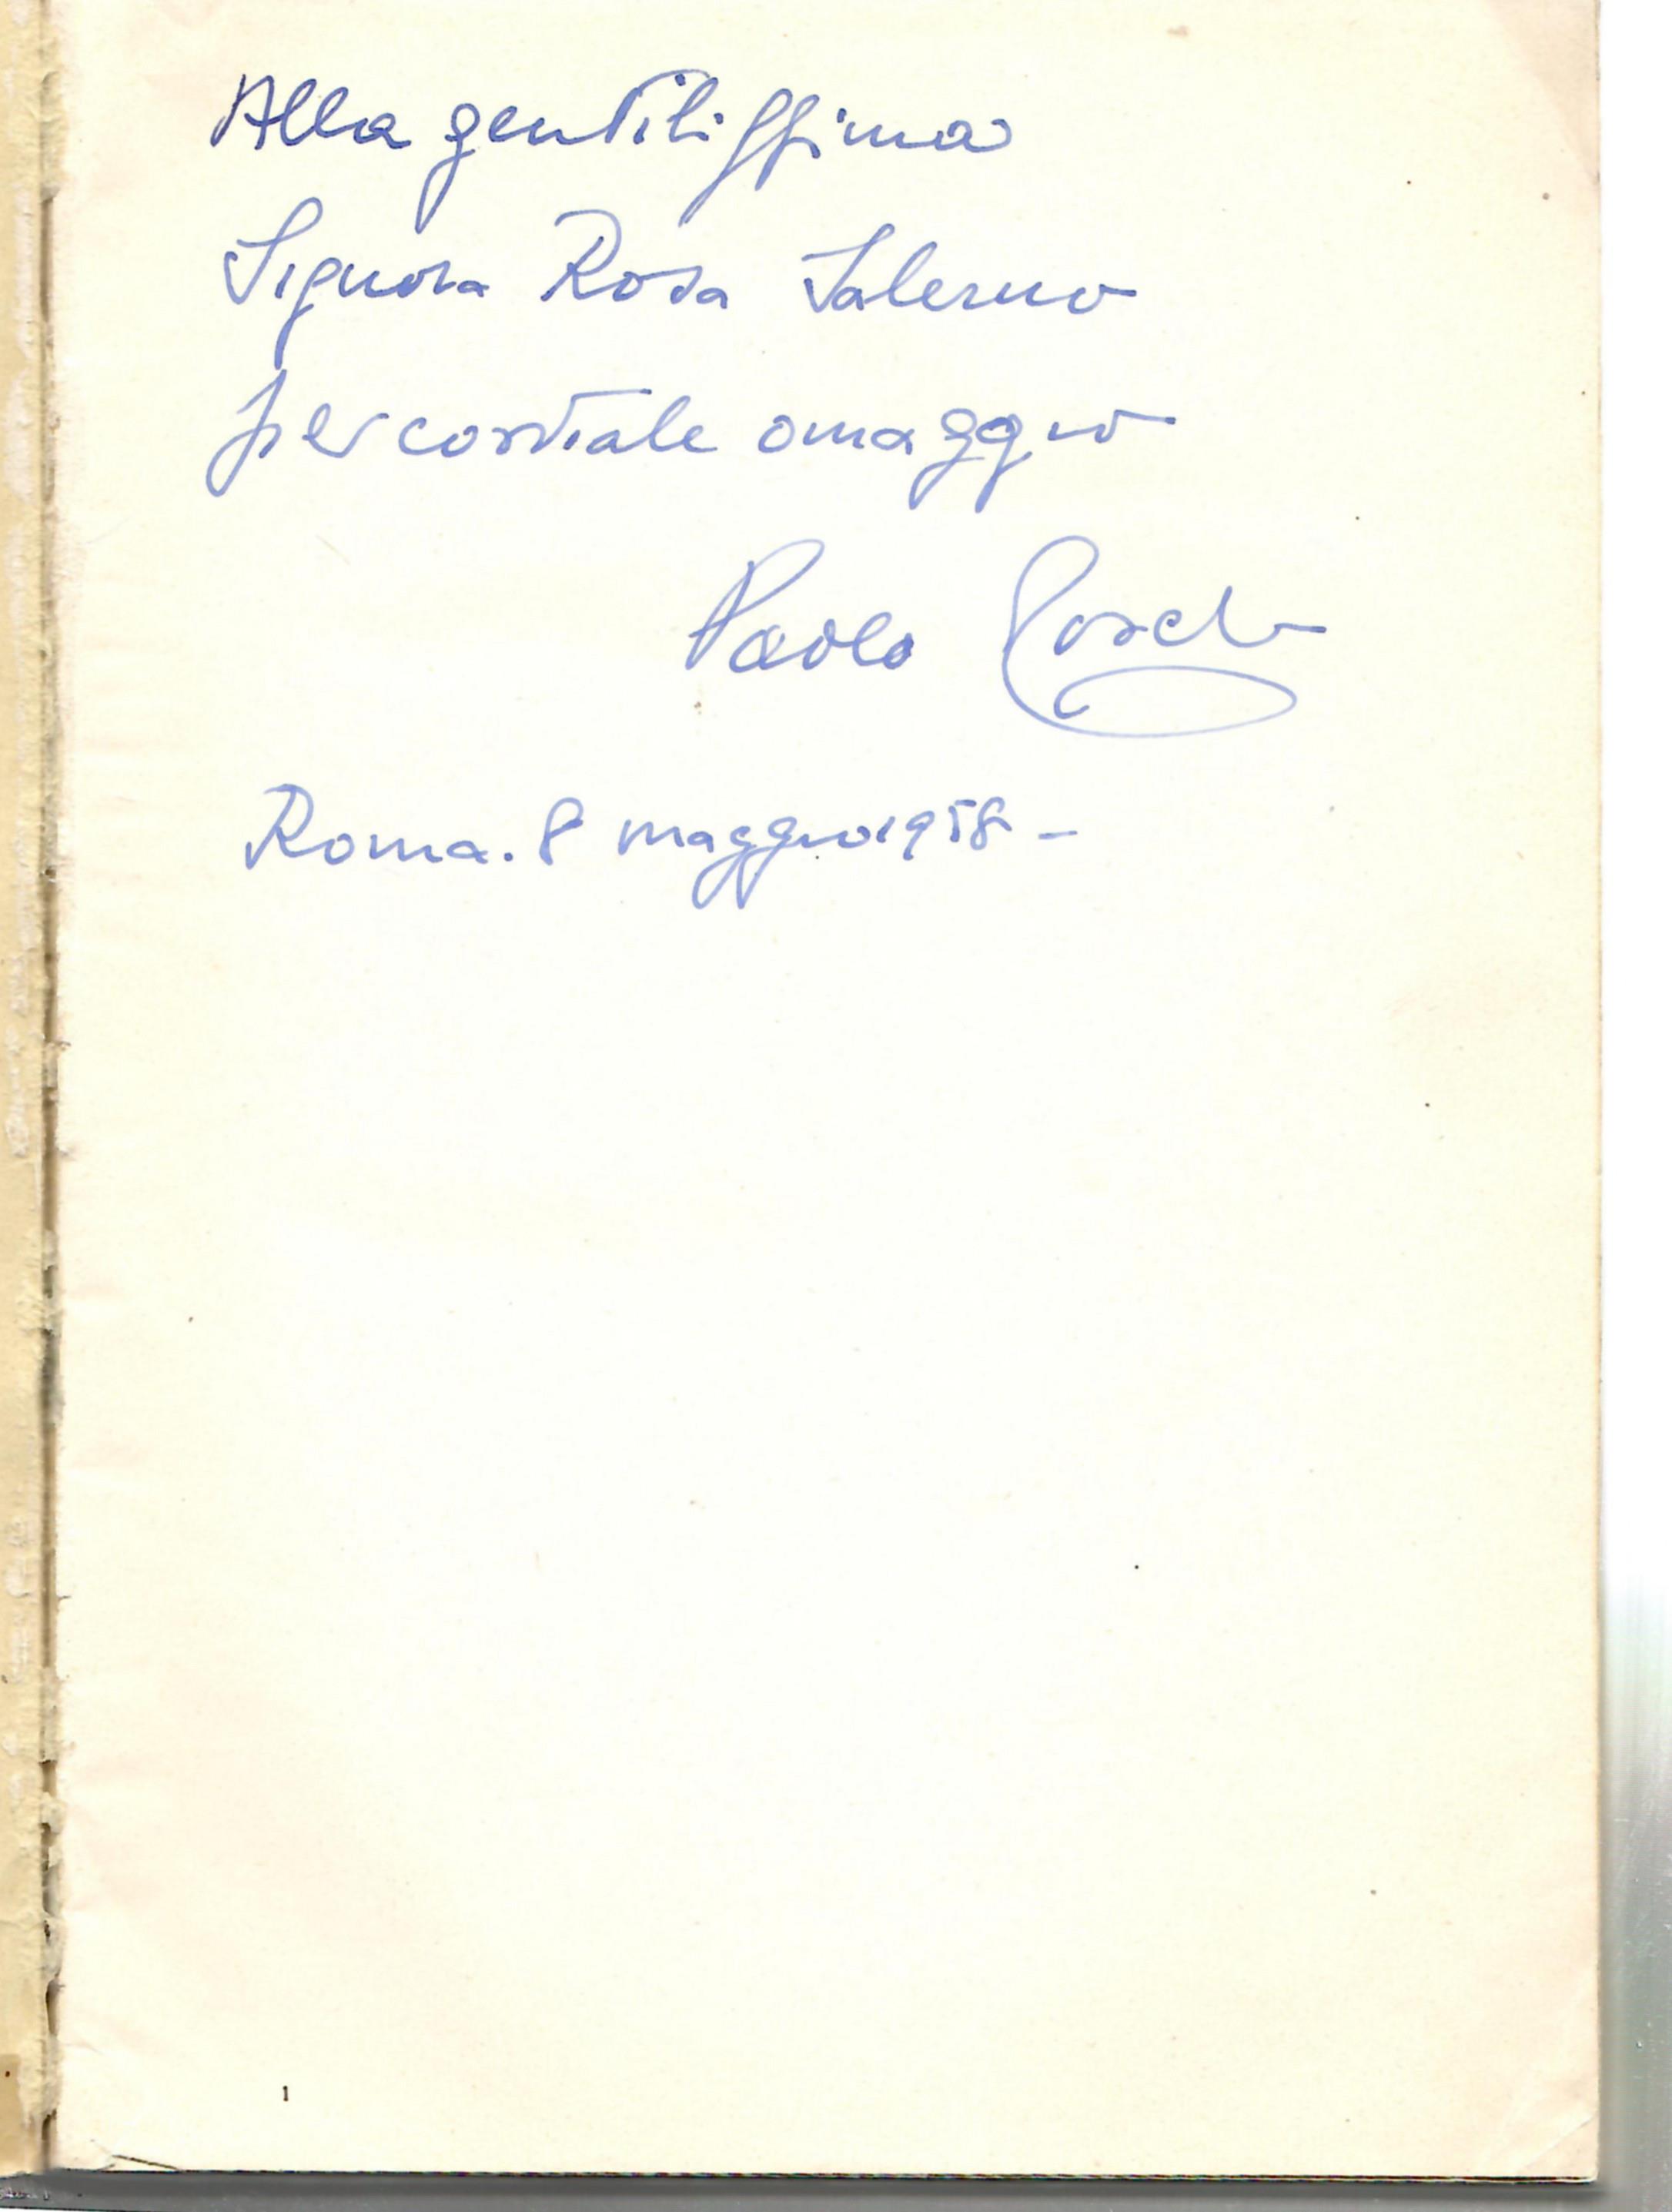 Alla gentilissima
Signora Rosa Salerno
per cordiale omaggio
Paolo
Roma. 8 maggio 1958 -
1